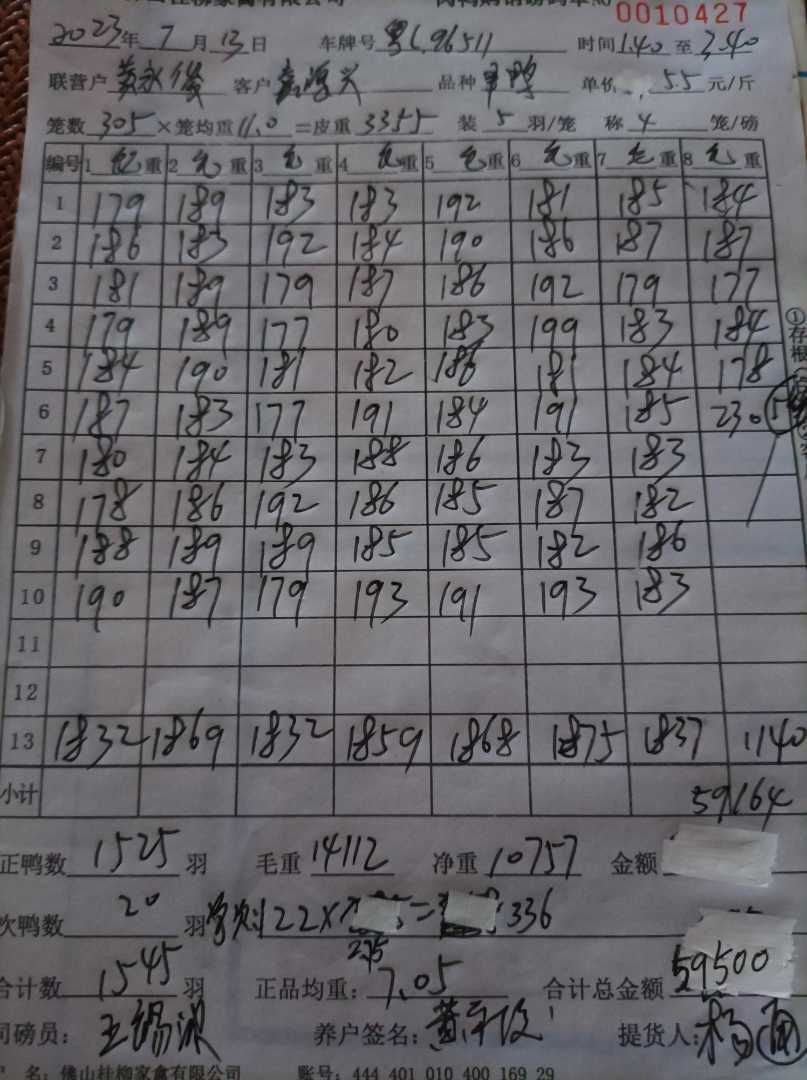 0010427
2023年7月13日 车牌号 粤L96511 时间1.40至2.40
联营户 黄永俊 客户 品种 单价 5.5元/斤
笼数305×笼均重11.0=皮重3355 装5羽/笼 称4笼/磅
编号 1 毛重 2 毛重 3 毛重 4 毛重 5 毛重 6 毛重 7 毛重 8 毛重
1 179 189 183 183 192 181 185 184
2 186 183 192 184 190 186 187 187
3 181 189 179 187 186 192 179 177
4 179 189 177 180 183 199 183 184
5 184 190 181 182 186 181 184 178
6 187 183 177 191 184 191 185 230
7 180 184 183 188 186 183 183
8 178 186 192 186 185 187 182
9 188 189 189 185 185 182 186
10 190 187 179 193 191 193 183
11
12
13 1832 1869 1832 1859 1868 1875 1837 1140
小计 59164
正鸭数1525羽 毛重14112 净重10757 金额
次鸭数20羽 122× = 336
2.75
合计数1545羽 正品均重:7.05 合计总金额59500
司磅员:王锡 养户签名:黄永俊 提货人:杨
户 名:佛山桂柳家禽有限公司 账号:444 401 010 400 169 29
①存根